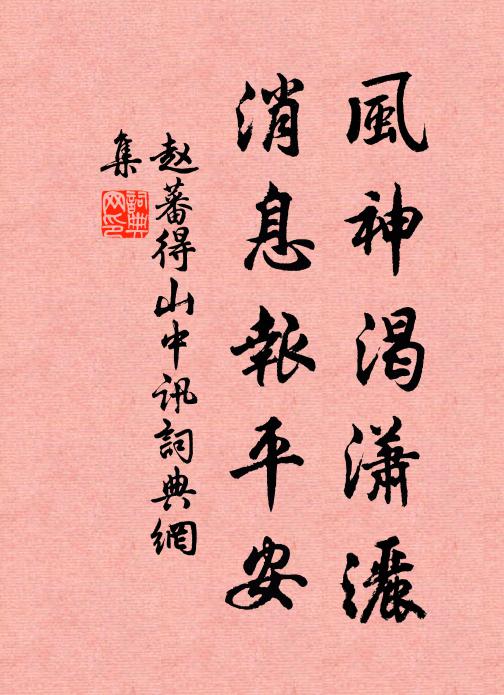 風神渴瀟灑
消息報平安
赵蕃得山中讯詞典網
集
詞典
网印